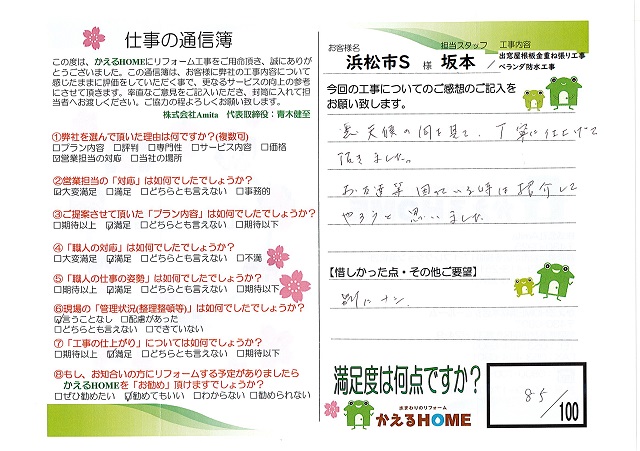 仕事の通信簿
この度は、かえるHOMEにリフォーム工事をご用命頂き、誠にありが
とうございました。この通信簿は、お客様に弊社の工事内容について
感じたままに評価をしていただく事で、更なるサービスの向上の参考
にさせて頂きます。率直なご意見をご記入いただき、封筒に入れて担
当者へお渡しください。ご協力の程よろしくお願い致します。
株式会社Amita 代表取締役：青木健至
①弊社を選んで頂いた理由は何ですか?(複数可)
□プラン内容 □評判 □専門性 □サービス内容 □価格
☑営業担当の対応 □当社の場所
②営業担当の「対応」は如何でしたでしょうか?
☑大変満足 □満足 □どちらとも言えない □事務的
③ご提案させて頂いた「プラン内容」は如何でしたでしょうか?
□期待以上 ☑満足 □どちらとも言えない □期待以下
④「職人の対応」は如何でしたでしょうか?
□大変満足 ☑満足 □どちらとも言えない □不満
⑤「職人の仕事の姿勢」は如何でしたでしょうか?
□期待以上 ☑満足 □どちらとも言えない □期待以下
⑥現場の「管理状況(整理整頓等)」は如何でしたでしょうか?
☑言うことなし □配慮があった
□どちらとも言えない □できていない
⑦「工事の仕上がり」については如何でしたでしょうか?
□期待以上 ☑満足 □どちらとも言えない □期待以下
⑧もし、お知合いの方にリフォームする予定がありましたら
かえるHOMEを「お勧め」頂けますでしょうか?
□ぜひ勧めたい ☑勧めてもいい □わからない □勧められない
お客様名 担当スタッフ 工事内容
浜松市S 様 坂本 / 出窓屋根板金重ね張り工事
ベランダ防水工事
今回の工事についてのご感想のご記入を
お願い致します。
悪天候の間を見て、丁寧に仕上げて
頂きました。
お友達等困っている時は紹介して
やろうと思いました
【惜しかった点・その他ご要望】
別にナシ
満足度は何点ですか?
85/100
水まわりのリフォーム
かえるHOME